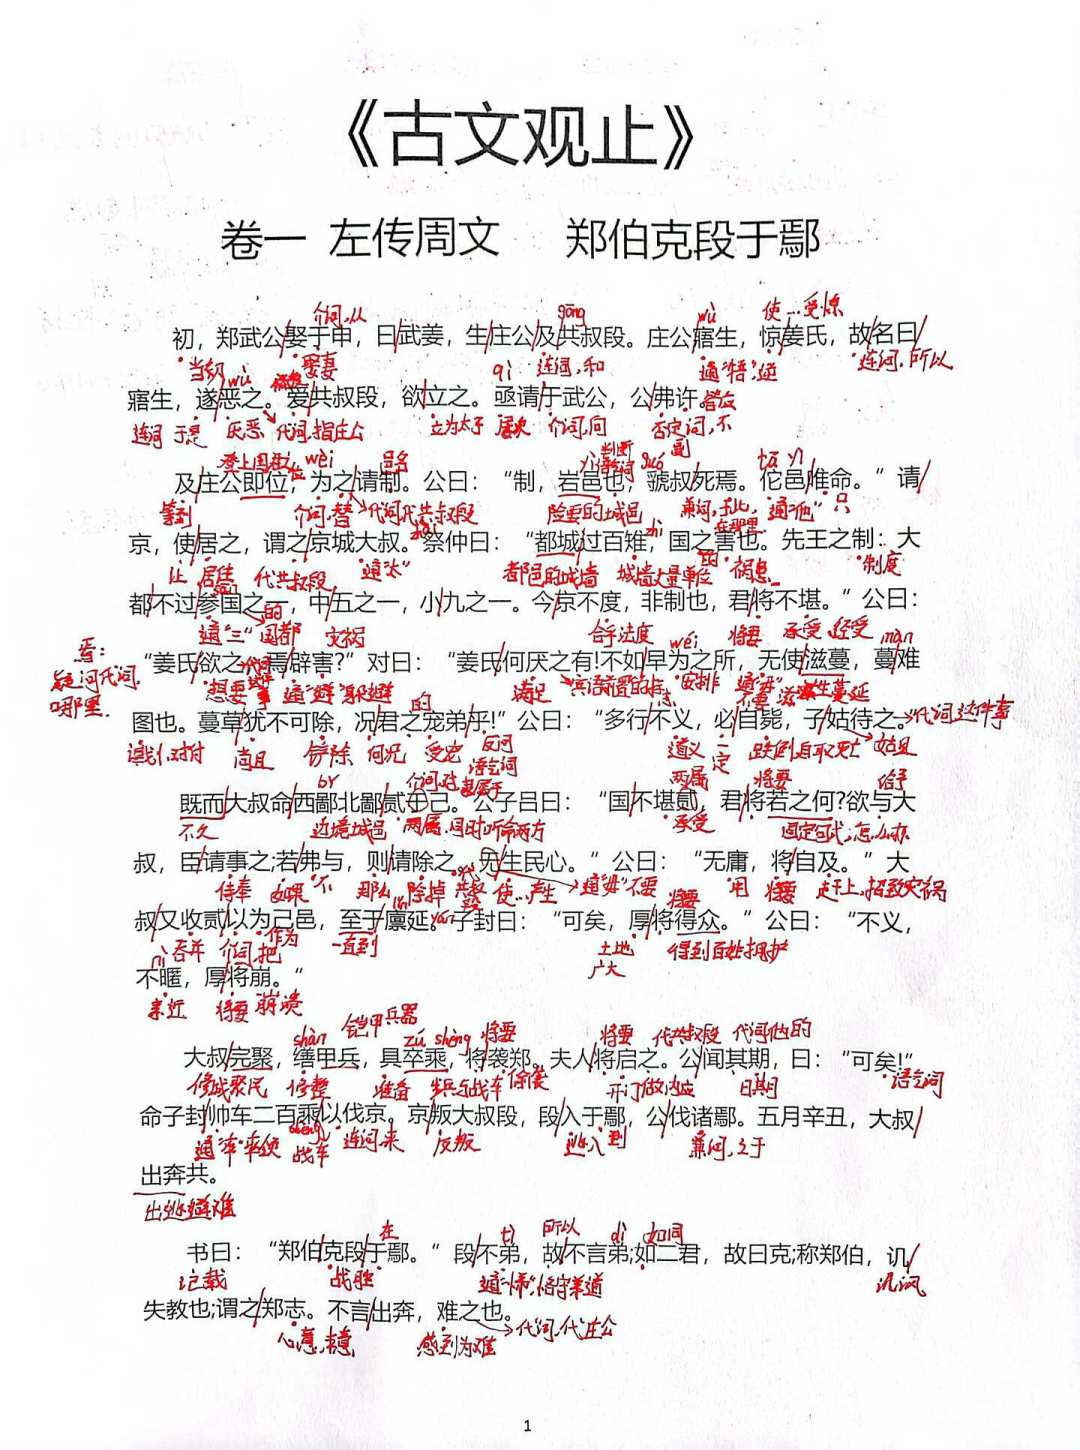 《古文观止》
卷一 左传周文 郑伯克段于鄢
介词,从 gōng wù 使…受惊
初，郑武公娶于申，曰武姜，生庄公及共叔段。庄公寤生，惊姜氏，故名曰
当初 wù 娶妻 qì 连词,和 通"牾",逆 连词,所以
寤生，遂恶之。爱共叔段，欲立之。亟请于武公，公弗许。
连词 于是 厌恶 代词,指庄公 立为太子 屡次 介词,向 否定词,不
登上国君位 wèi 邑名 判断 guó tā
及庄公即位，为之请制。公曰：“制，岩邑也，虢叔死焉。佗邑唯命。”请
等到 介词,替 代词代共叔段 险要的城邑 兼词,于此 通"他" 只
zhài zhì
京，使居之，谓之京城大叔。祭仲曰：“都城过百雉，国之害也。先王之制：大
让 居住 代共叔段 通"太" 都邑的城墙 城墙丈量单位 的 祸患 制度
都不过参国之一，中五之一，小九之一。今京不度，非制也，君将不堪。”公曰：
通"三" 国都 的 合乎法度 wéi 将要 承受,经受 màn
焉：疑问代词,哪里
“姜氏欲之，焉辟害?”对曰：“姜氏何厌之有!不如早为之所，无使滋蔓，蔓难
想要 通"避"躲避 满足 宾语前置的标志 安排 滋生蔓延
图也。蔓草犹不可除，况君之宠弟乎!”公曰：“多行不义，必自毙，子姑待之。” 代词,这件事
谋划,对付 尚且 铲除 何况 受宠 反问语气词 道义 一定 跌倒,自取灭亡 姑且
bǐ 两属 将要 给予
既而大叔命西鄙北鄙贰于己。公子吕曰：“国不堪贰，君将若之何?欲与大
不久 边境城邑 两属,同时听命两方 承受 固定句式,怎么办
叔，臣请事之;若弗与，则请除之。无生民心。”公曰：“无庸，将自及。”大
侍奉 如果 不 那么 除掉 共叔段 使…产生 通"毋"不要 用 将要 赶上,招致灾祸
叔又收贰以为己邑，至于廪延。子封曰：“可矣，厚将得众。”公曰：“不义，
介词,把 作为 一直到 土地广大 得到百姓拥护
不暱，厚将崩。”
亲近 将要 崩溃
shàn 铠甲兵器 zú shèng 将要 将要 代共叔段 代词他的
大叔完聚，缮甲兵，具卒乘，将袭郑。夫人将启之。公闻其期，曰：“可矣!”
修城聚民 修整 准备 步兵与战车 偷袭 开门做内应 日期 语气词
命子封帅车二百乘以伐京。京叛大叔段，段入于鄢，公伐诸鄢。五月辛丑，大叔
通"率"率领 shèng 战车 连词,来 反叛 逃入 到 兼词,之于
出奔共。
出逃避难
在 tì 所以 dì 如同
书曰：“郑伯克段于鄢。”段不弟，故不言弟;如二君，故曰克;称郑伯，讥
记载 战胜 通"悌",恪守弟道 讥讽
失教也;谓之郑志。不言出奔，难之也。
心意,本意 感到为难 代词,代庄公
1